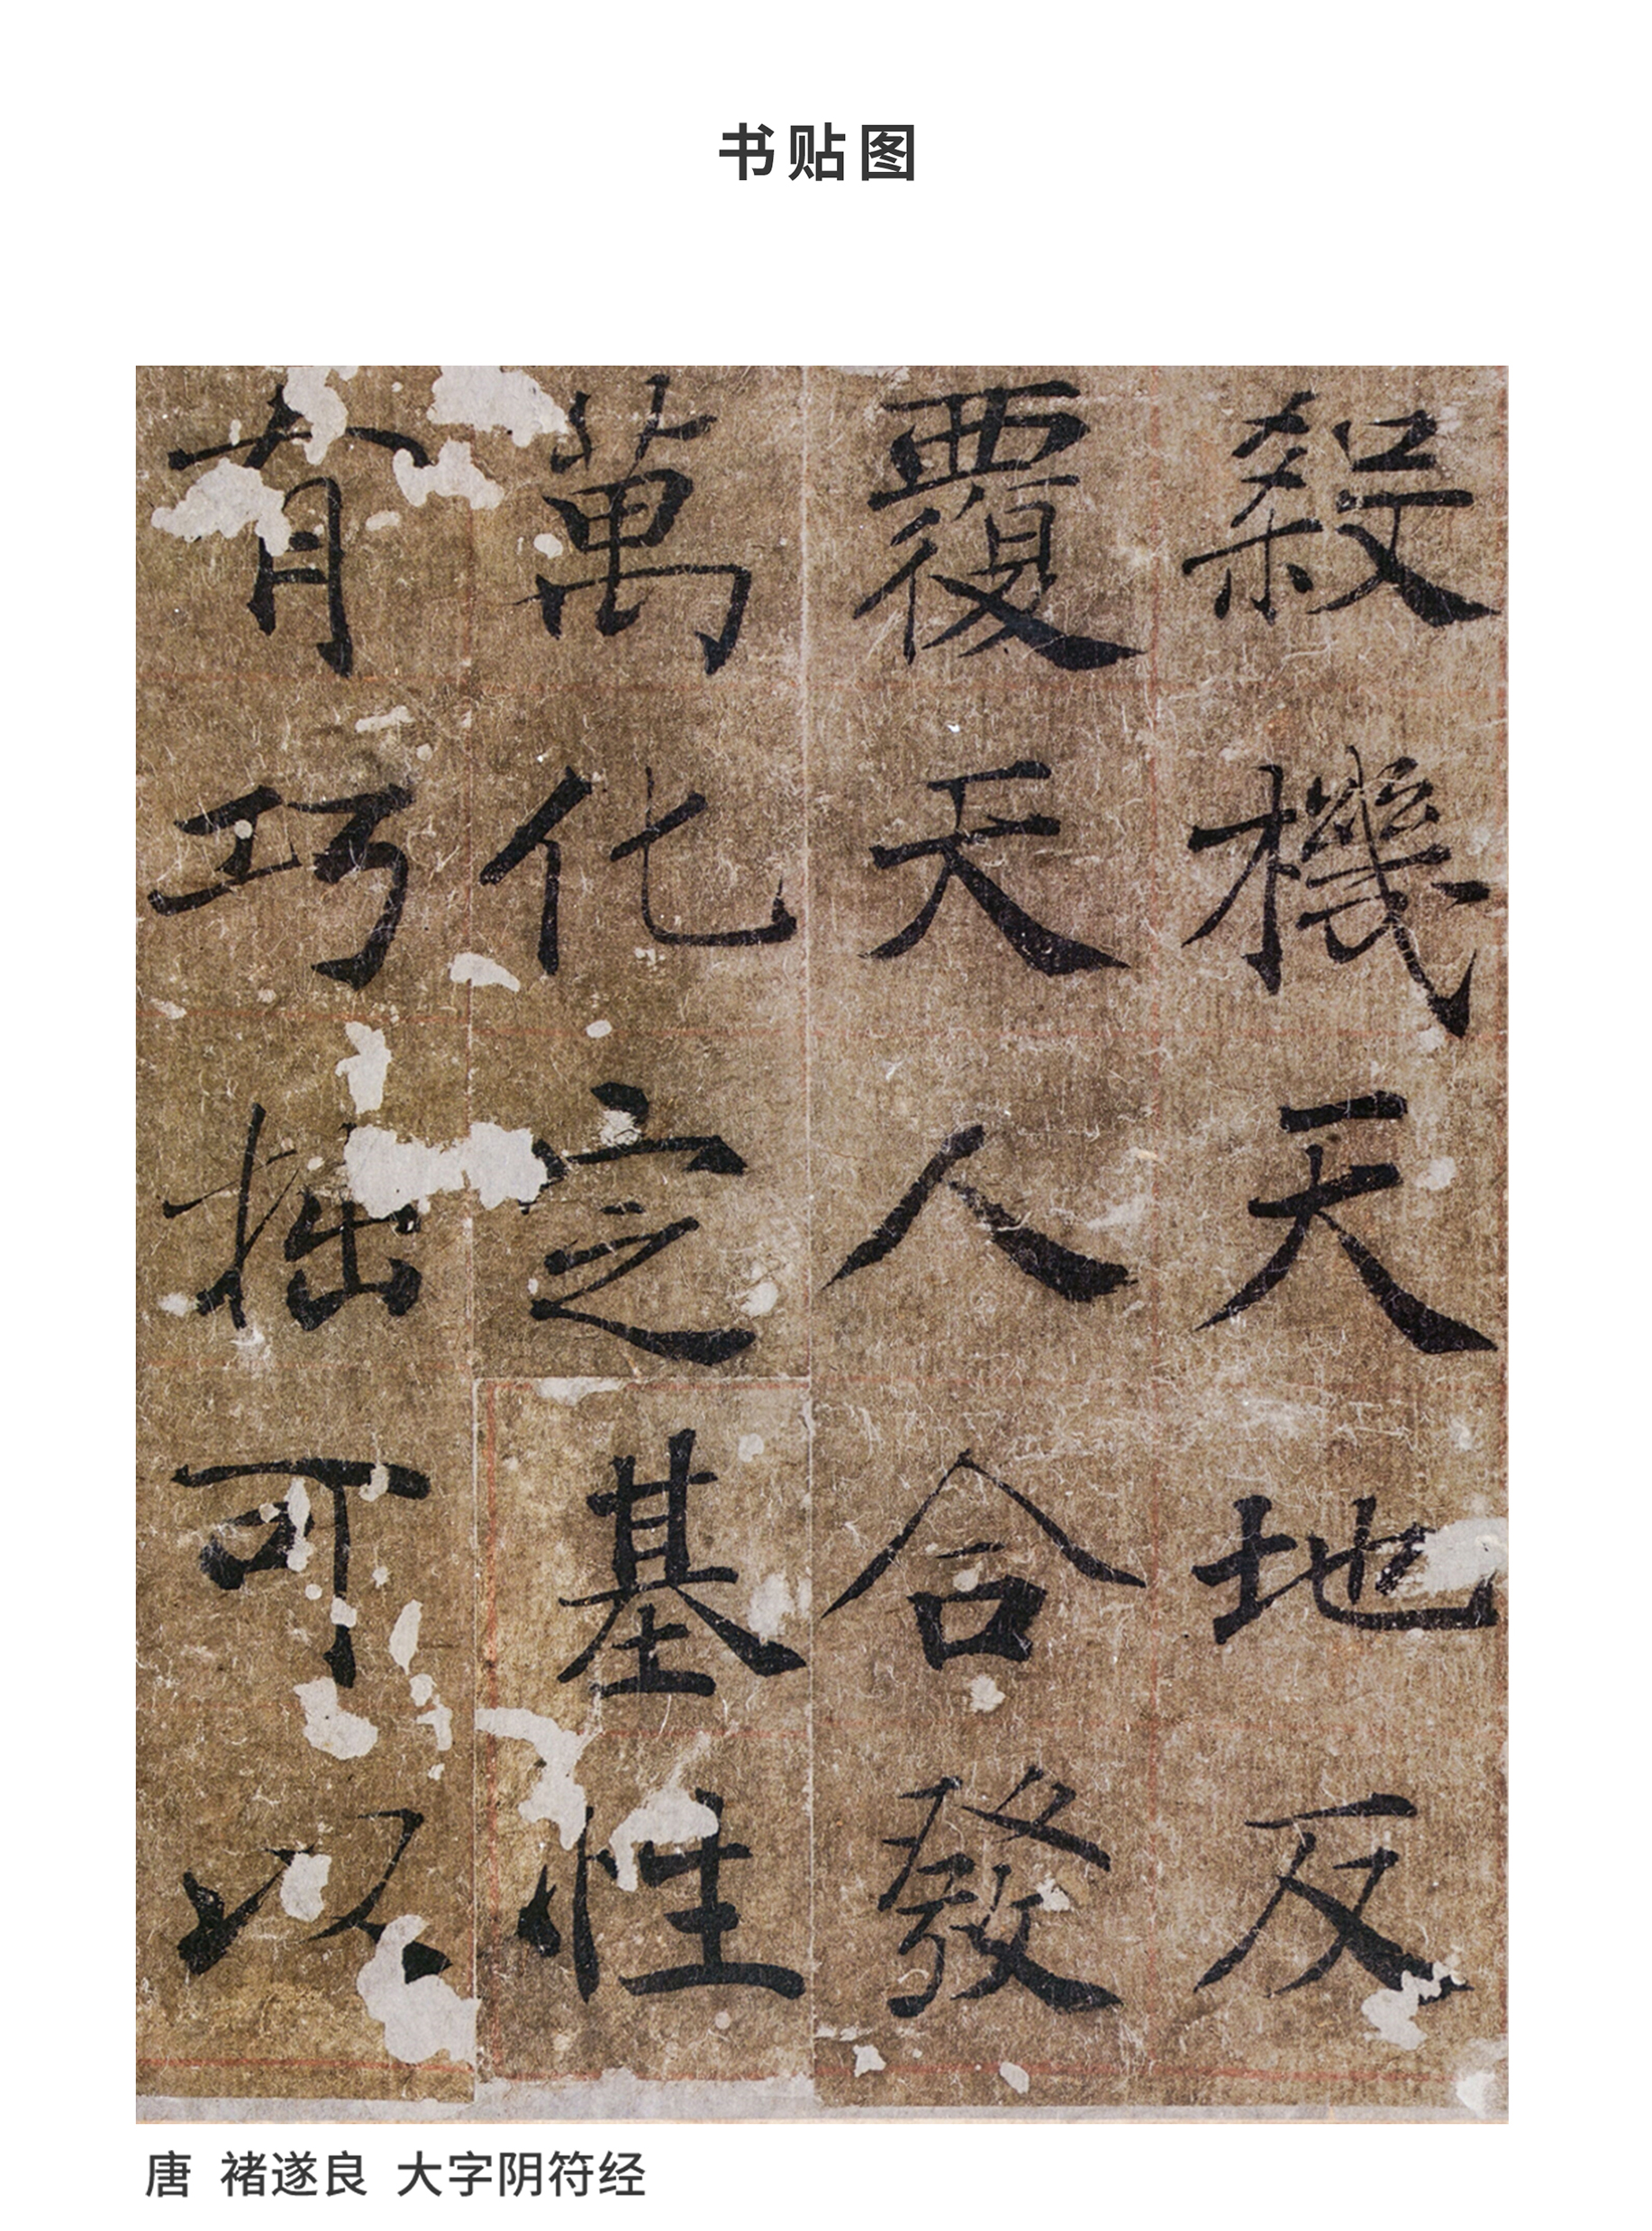 书贴图
殺機天地反
覆天人合發
萬化定基性
有巧拙可以
唐 褚遂良 大字阴符经